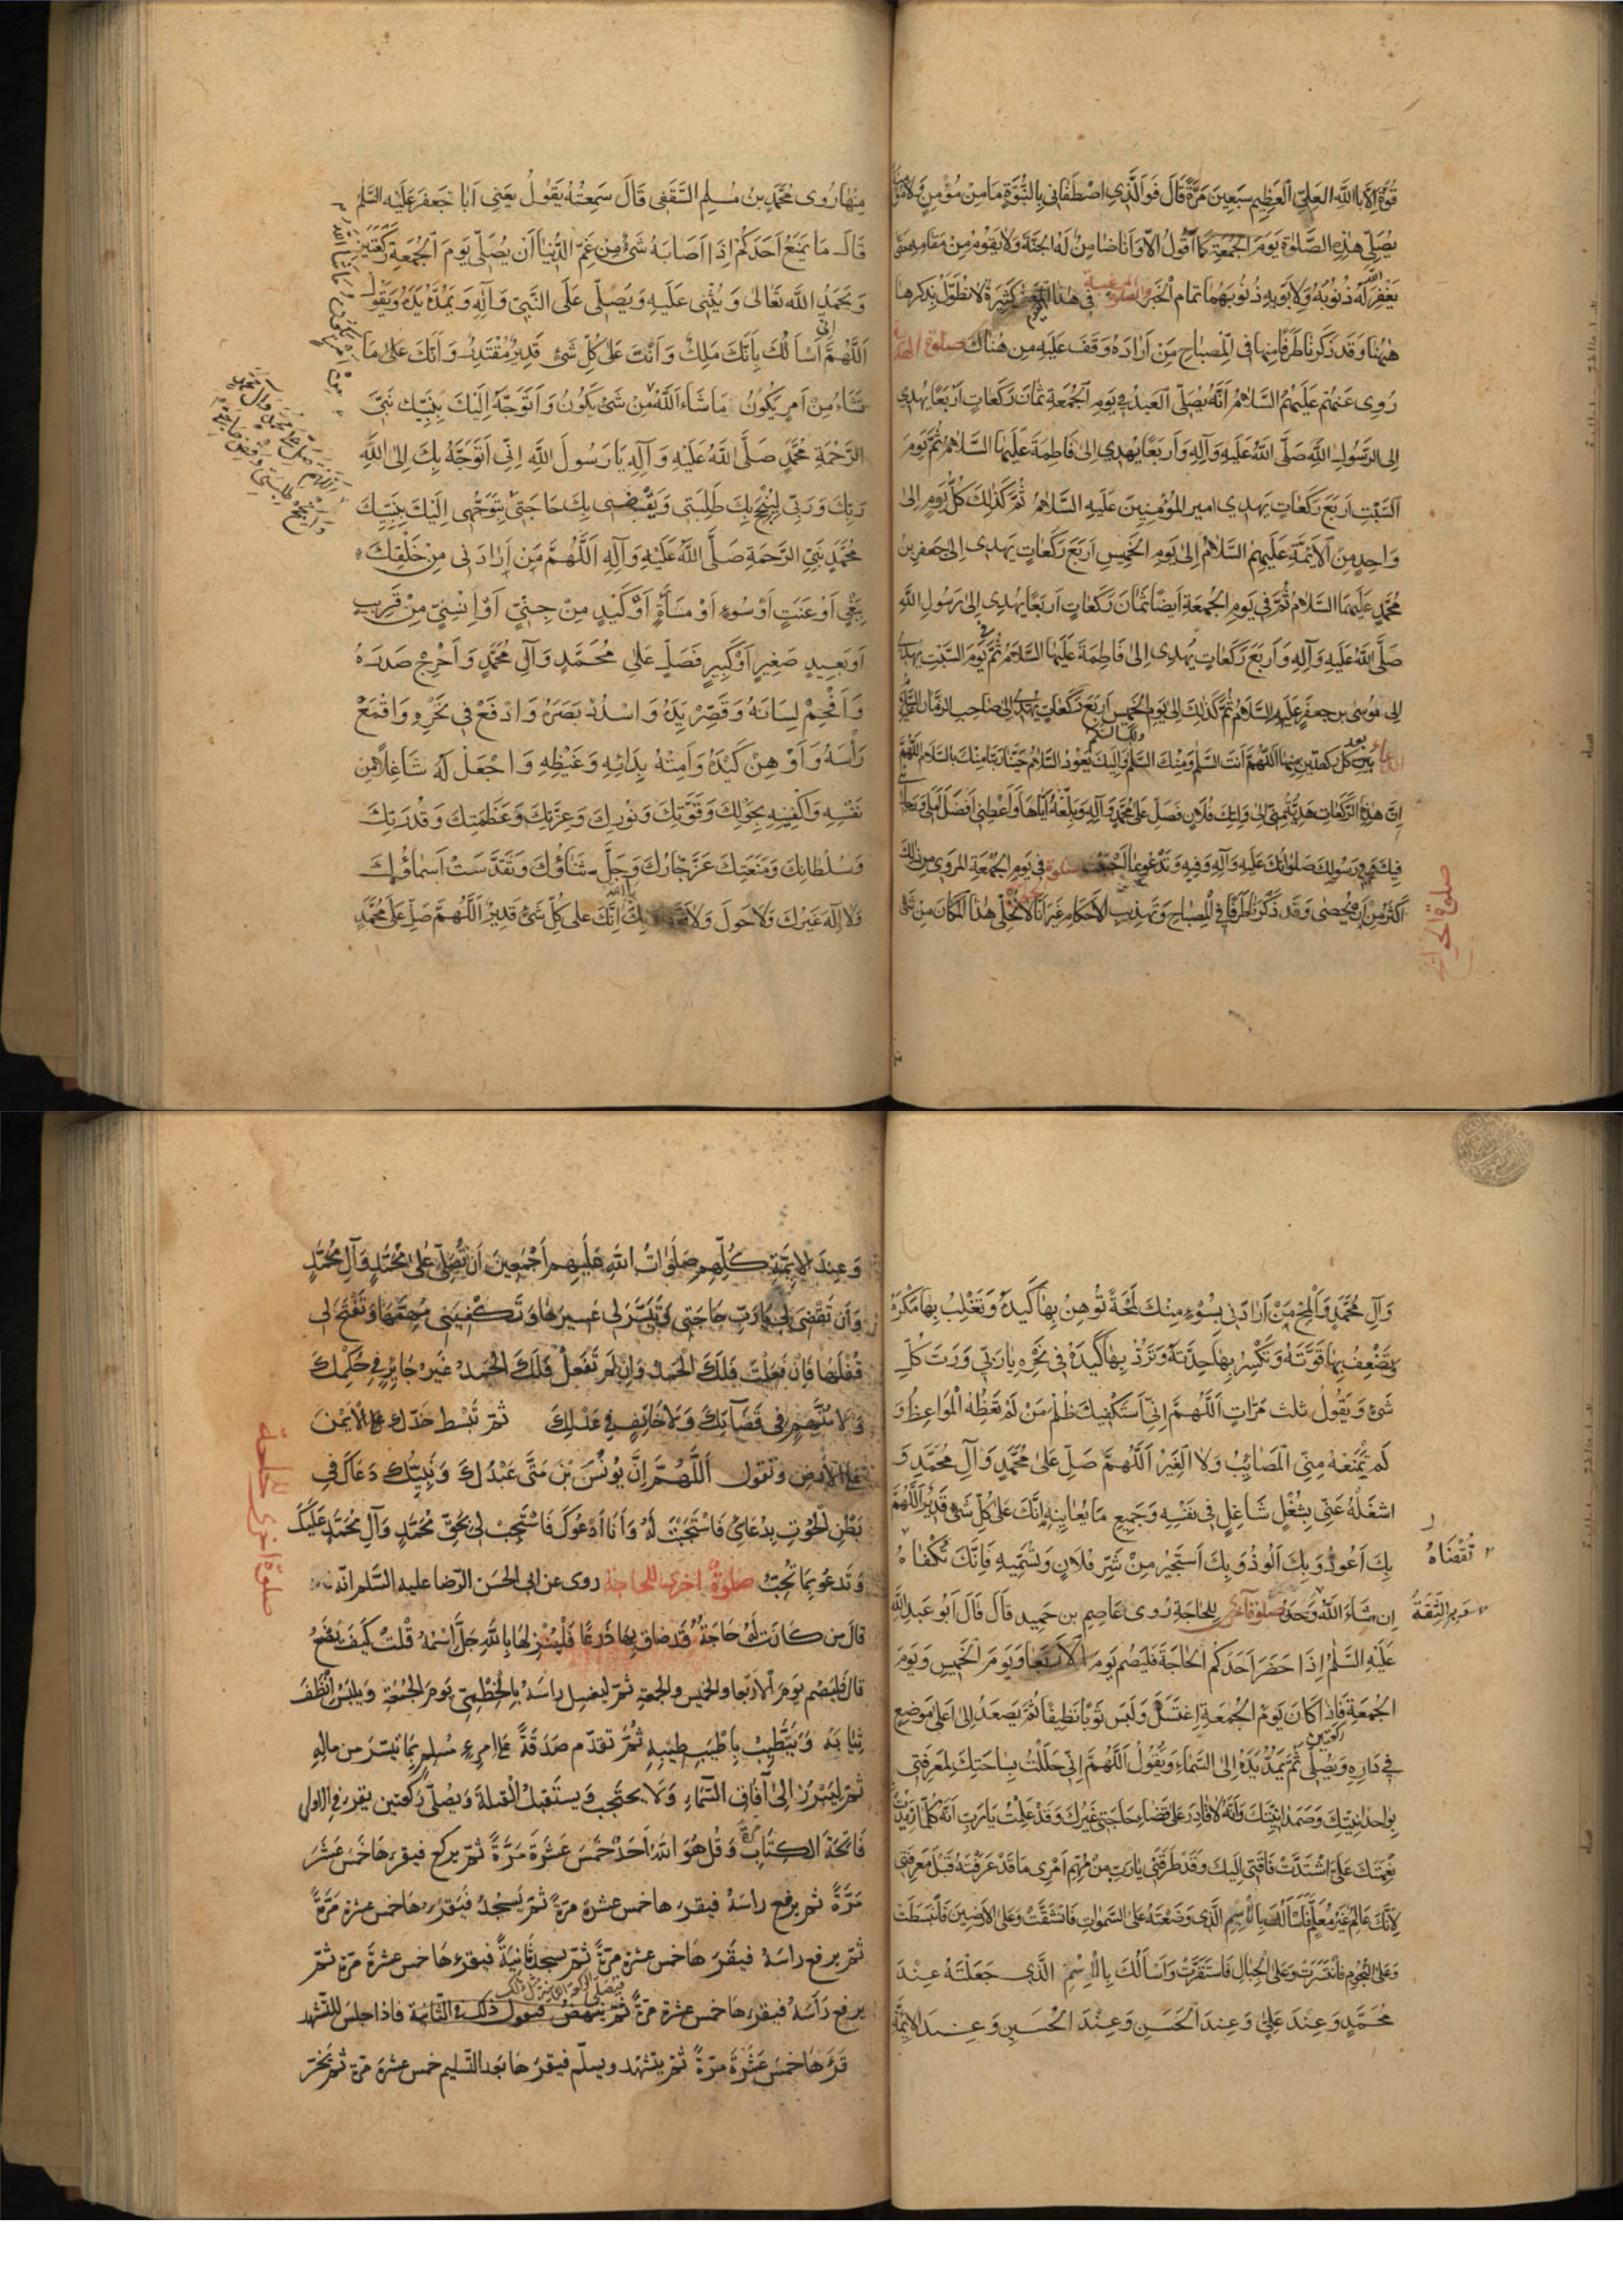 قُوَّةَ اِلَّا بِاللّٰهِ العَلِيِّ العَظِيمِ سَبعِينَ مَرَّةً قَالَ فَوَالَّذِي اصْطَفَانِي بِالنُّبُوَّةِ مَا مِنْ مُؤْمِنٍ وَلَا مُؤمنة
يُصَلِّي هٰذِهِ الصَّلوٰةَ يَوْمَ الجُمعَةِ كَمَا اَقُولُ اِلَّا وَاَنَا ضَامِنٌ لَهُ الجَنَّةَ وَلَا يَقُومُ مِنْ مَقَامِهِ حتى
يَغْفِرَ اللّٰه لَهُ ذُنُوبَهُ وَلِاَبَوَيهِ ذُنُوبَهُمَا تمام الخَبَر والصلوٰة المرغبة فى هٰذا اليوم كثِيرَة لا نطوّل بِذكرها
هٰيهُنا وَقَد ذَكَرنَا طَرَفًا مِنها فى المِصباحِ مَن اَرَادَهُ وَقَفَ عَلَيهِ مِن هُنَاكَ صلوة الهدية
رُوِىَ عَنهُم عَلَيهِمُ السَّلَامُ اَنَّهُ يُصَلِّي العَبدُ فِي يَومِ الجُمعَةِ ثَمَانَ رَكَعَاتٍ اَربَعًا يُهدِي
اِلى الرَّسُولِ اللّٰهِ صَلَّى اللّٰهُ عَلَيهِ وَآلِهِ وَاَربَعًا يُهدِي اِلى فَاطِمَةَ عَلَيهَا السَّلَامُ ثُمَّ يَومَ
السَّبتِ اَربَعَ رَكَعَاتٍ يَهدِي امير المُؤمِنِينَ عَلَيهِ السَّلَامُ ثُمَّ كَذٰلِكَ كُلَّ يَومٍ اِلى
وَاحِدٍ مِنَ الاَئِمَّةِ عَلَيهِمُ السَّلَامُ اِلى يَومِ الخَمِيسِ اَربَعَ رَكَعَاتٍ يَهدِي اِلى جَعفَرِ بنِ
مُحَمَّدٍ عَلَيهِمَا السَّلَام ثُمَّ فِي يَومِ الجُمعَةِ اَيضًا ثَمَانَ رَكَعَاتٍ اَربَعًا يُهدِى اِلى رَسُولِ اللّٰهِ
صَلَّى اللّٰهُ عَلَيهِ وَآلِهِ وَاَربَعَ رَكَعَاتٍ يُهدِى اِلىٰ فَاطِمَةَ عَلَيهَا السَّلَامُ ثُمَّ فى يَومَ السَّبتِ يهدى
اِلى مُوسَى بن جَعفَرٍ عَلَيهِ السَّلَامُ ثُمَّ كَذٰلِكَ اِلى يَومِ الخَمِيسِ اَربَعَ رَكَعَاتٍ يُهدِى اِلى صَاحِبِ الزَّمَان عليه السلام
الدعاء بين كل ركعتين مِنها اللّٰهُمَّ اَنتَ السَّلَم وَمِنكَ السَّلَم وَاِلَيكَ يَعُودُ السَّلَامُ حَيِّنَا رَبَّنَا مِنكَ بِالسَّلَام اللّٰهُمَّ
اِنَّ هٰذِهِ الرَّكَعَاتِ هَدِيَّةٌ مِنِّي اِلى وَلِيِّكَ فُلَانٍ فَصَلِّ عَلى مُحَمَّدٍ وَآلِهِ وَبَلِّغهُ اِيَّاهَا وَاَعطِنِي اَفضَلَ اَمَلِي وَرَجائى
فِيكَ وَفِي رَسُولِكَ صَلَوَاتُكَ عَلَيهِ وَآلِهِ وَفِيهِ وَتَدعُو بِمَا اَحبَبت صلوة فى يَومِ الجُمعَةِ المَروى مِن ذٰلِكَ
اَكثَرُ مِن اَن تُحصٰى وَقَد ذَكَرنَا طَرَفًا فِي المِصبَاحِ وَتَهذِيبِ الاَحكَامِ غَيرَ اَنَّا لَا نُخَلِّي هٰذَا المَكَانَ مِن شَئ
صلوة الحوائج
مِنهَا رُوى مُحَمَّدِ بنُ مُسلِمٍ الثَّقَفِى قَالَ سَمِعتُهُ يَقُولُ يَعنِي اَبَا جَعفَرٍ عَلَيهِ السَّلَم
قَالَ مَا يَمنَعُ اَحَدَكُم اِذَا اَصَابَهُ شَئٌ مِن غَمِّ الدُّنيَا اَن يُصَلِّي يَومَ الجُمعَةِ رَكعَتَينِ
وَيَحمَدَ اللّٰهَ تَعَالىٰ وَيُثنِى عَلَيهِ وَيُصَلِّى عَلَى النَّبِيِّ وَآلِهِ وَيَمُدَّ يَدَهُ وَيَقُولُ
اَللّٰهُمَّ اِنّى اَسْاَلُكَ بِاَنَّكَ مَلِكٌ وَاَنتَ عَلىٰ كُلِّ شَئٍ قَدِيرٌ مُقتَدِرٌ وَاَنَّكَ عَلى مَا
تَشَاءُ مِن اَمرٍ يَكُونُ مَا شَاءَ اللّٰهُ مِن شَئٍ يَكُونُ وَاَتَوَجَّهُ اِلَيكَ بِنَبِيِّكَ نَبِيِّ
الرَّحمَةِ مُحَمَّدٍ صَلَّى اللّٰهُ عَلَيهِ وَآلِهِ يَا رَسُولَ اللّٰهِ اِنّي اَتَوَجَّهُ بِكَ اِلىَ اللّٰهِ
رَبِّكَ وَرَبِّي لِيُنجِحَ بِكَ طَلِبَتِى وَيَقضِى بِكَ حَاجَتِى بِتَوَجُّهِى اِلَيكَ بِنَبِيِّكَ
مُحَمَّدٍ نَبِيِّ الرَّحمَةِ صَلَّى اللّٰهُ عَلَيهِ وَآلِهِ اَللّٰهُمَّ مَن اَرَادَنِى مِن خَلقِكَ
بِبَغيٍ اَو عَنَتٍ اَو سُوءٍ اَو مَسَاءَةٍ اَو كَيدٍ مِن جِنِّيٍّ اَو اِنسِيٍّ مِن قَرِيبٍ
اَو بَعِيدٍ صَغِيرٍ اَو كَبِيرٍ فَصَلِّ عَلى مُحَمَّدٍ وَآلِ مُحَمَّدٍ وَاَحرِج صَدرَهُ
وَاَفحِم لِسَانَهُ وَقَصِّر يَدَهُ وَاسدُد بَصَرَهُ وَادفَع فى نَحرِهِ وَاقمَع
رَأسَهُ وَاَوهِن كَيدَهُ وَاَمِتهُ بِدَائِهِ وَغَيظِهِ وَاجعَل لَهُ شَاغِلًا مِن
نَفسِهِ وَاكفِنِيهِ بِحَولِكَ وَقُوَّتِكَ وَنُورِكَ وَعِزَّتِكَ وَعَظَمَتِكَ وَقُدرَتِكَ
وَسُلطَانِكَ وَمَنَعَتِكَ عَزَّ جَارُكَ وَجَلَّ ثَنَاؤُكَ وَتَقَدَّسَت اَسمَاؤُكَ
وَلَا اِلٰهَ غَيرُكَ وَلَا حَولَ وَلَا قُوَّةَ بِكَ يا اللّٰه اِنَّكَ عَلى كُلِّ شَئٍ قَدِيرٌ اَللّٰهُمَّ صَلِّ عَلى مُحَمَّدٍ
وَآلِ مُحَمَّدٍ وَالمَح مَن اَرَادَنِي بِسُوءٍ مِنكَ لَمحَةً تُوهِنُ بِهَا كَيدَهُ وَتَغلِبُ بِهَا مَكرَهُ
وَتُضعِفُ بِهَا قُوَّتَهُ وَتَكسِرُ بِهَا حِدَّتَهُ وَتَرُدُّ بِهَا كَيدَهُ فى نَحرِهِ يَا رَبّي وَرَبَّ كُلِّ
شَئٍ وَيَقُولُ ثلث مَرَّاتٍ اَللّٰهُمَّ اِنّي اَستَكفِيكَ ظُلمَ مَن لَم تَعِظهُ المَوَاعِظُ وَ
لَم تَمنَعهُ مِنّي المَصَائِبُ وَلَا الغِيَرُ اَللّٰهُمَّ صَلِّ عَلىٰ مُحَمَّدٍ وَآلِ مُحَمَّدٍ وَ
اشغَلهُ عَنّي بِشُغلٍ شَاغِلٍ فى نَفسِهِ وَجَمِيعِ مَا يُعَانِيهِ اِنَّكَ عَلىٰ كُلِّ شَئٍ قَدِيرٌ اَللّٰهُمَّ
بِكَ اَعُوذُ وَبِكَ اَلُوذُ وَبِكَ اَستَجِيرُ مِن شَرِّ فُلَانٍ وَتُسَمِّيهِ فَاِنَّكَ تُكفَاهُ
اِن شَاءَ اللّٰهُ وَحدَهُ صلوة اخرى لِلحَاجَةِ رُوى عَاصِمِ بن حَمِيد قَالَ قَالَ اَبُو عَبدِ اللّٰهِ
عَلَيهِ السَّلَمُ اِذَا حَضَرَ اَحَدَكُم الحَاجَةَ فَليَصُم يَومَ الاَربَعَا وَيَومَ الخَمِيسِ وَيَومَ
الجُمعَةِ فَاِذَا كَانَ يَومَ الجُمعَةِ اِغتَسَلَ وَلَبِسَ ثَوبًا نَظِيفًا ثُمَّ يَصعَدُ اِلى اَعلىٰ مَوضِعٍ
فِي دَارِهِ وَيُصَلِّى ركعتين ثُمَّ يَمُدُّ يَدَهُ اِلى السَّمَاءِ وَيَقُولُ اَللّٰهُمَّ اِنّي حَلَلتُ بِسَاحَتِكَ لِمَعرِفَتِى
بِوَاحدَانِيَّتِكَ وَصَمَدَانِيَّتِكَ وَاَنَّهُ لَا قَادِرَ عَلىٰ قَضَاءِ حَاجَتِى غَيرُكَ وَقَد عَلِمتُ يَا رَبِّ اَنَّهُ كُلَّمَا ازدَادَت
نِعمَتُكَ عَلَيَّ اشتَدَّت فَاقَتِى اِلَيكَ وَقَد طَرَقَنِي يَا رَبِّ مِن مُهِمِّ اَمرِى مَا قَد عَرَفتَهُ قَبلَ مَعرِفَتِى
لِاَنَّكَ عَالِمٌ غَيرُ مُعَلَّمٍ فَاَسأَلُكَ بِالاِسمِ الَّذِى وَضَعتَهُ عَلَى السَّمٰوَاتِ فَانشَقَّت وَعَلى الاَرَضِينَ فَانبَسَطَت
وَعَلى النُّجُومِ فَانتَشَرَت وَعَلى الجِبَالِ فَاستَقَرَّت وَاَسأَلُكَ بِالاِسمِ الَّذِى جَعَلتَهُ عِندَ
مُحَمَّدٍ وَعِندَ عَلِيٍّ وَعِندَ الحَسَنِ وَعِندَ الحُسَينِ وَعِندَ الاَئِمَّةِ
وَعِندَ الاَئِمَّةِ كُلِّهِم صَلَوَاتُ اللّٰهِ عَلَيهِم اَجمَعِينَ اَن تُصَلِّيَ عَلىٰ مُحَمَّدٍ وَآلِ مُحَمَّدٍ
وَاَن تَقضِىَ لِي يَا رَبِّ حَاجَتِى وَتُيَسِّرَ لى عَسِيرَهَا وَتَكفِيَنِى مُهِمَّهَا وَتَفتَحَ لى
قُفلَهَا فَاِن فَعَلتَ فَلَكَ الحَمدُ وَاِن لَم تَفعَل فَلَكَ الحَمدُ غَيرَ جَائِرٍ فِي حُكمِكَ
وَلَا مُتَّهَمٍ فِى قَضَائِكَ وَلَا حَائِفٍ فِي عَدلِكَ ثمّ تَبسُط خَدّك على الاَيمَنَ
عَلَى الاَرضِ وَتَقُول اَللّٰهُمَّ اِنَّ يُونُسَ بنَ مَتَّى عَبدُكَ وَنَبِيُّكَ دَعَاكَ فِي
بَطنِ الحُوتِ بِدُعَائِي فَاستَجَبتَ لَهُ وَاَنَا اَدعُوكَ فَاستَجِب لِي بِحَقِّ مُحَمَّدٍ وَآلِ مُحَمَّدٍ عَلَيكَ
وَتَدعُو بِمَا تُحِبُّ صلوةٌ اخرى للحاجة روى عن ابى الحَسَن الرّضا عليه السَّلم انّه
قَالَ مَن كَانَت لَهُ حَاجَةٌ قَد ضَاقَ بِهَا ذَرعًا فَليُنزِلهَا بِاللّٰهِ جَلَّ اسمُهُ قُلتُ كَيفَ يَصنَعُ
قالَ فَليَصُم يَومَ الاَربَعا والخميس والجمعةِ ثمّ ليغسِل راسَهُ بِالخِطمِيّ يَومَ الجُمُعَةِ وَيلبَسُ اَنظَفَ
ثِيَابِهِ وَيَتَطَيَّبُ بِاَطيَبِ طِيبِهِ ثُمَّ تقدّم صَدَقَةً عَلى امرِءٍ مُسلِمٍ بِمَا تيسّرَ من مالِهِ
ثمّ ليَبرُز اِلىٰ آفَاقِ السَّمَاءِ وَلَا يحتَجب وَيستَقبِلُ القِبلَةَ وَيُصَلّي رَكعتين يقرَءُ في الاولى
فَاتِحَةَ الكِتَابِ وَقُل هُوَ اللّٰهُ اَحَدٌ خَمسَ عَشرَةَ مَرَّةً ثمّ يركع فيقرءها خَمسَ عَشرَ
مَرَّةً ثم يَرفع راسَهُ فيقرءها خمس عشرة مرّةً ثمّ يَسجُدُ فَيَقرَءُها خمس عشرة مَرَّةً
ثمّ يرفع راسَهُ فيقرءها خمس عشرة مرّةً ثمّ يسجد ثَانِيَةً فيقرءها خمس عشرةَ مرّة ثمّ
يرفع رَأسَهُ فيقرءها خمس عشرة مرّةً ثُمَّ يَنهَضُ فيقول ذلك فى الثّانية فاذا جلسَ للتّشهد
قَرَءها خَمسَ عَشرَةَ مَرّةً ثمّ يتشهّد ويسلّم فيقرءها بَعد التّسليم خمس عشرة مرّة ثمّ يخرّ
صلوة اخرى للحاجة